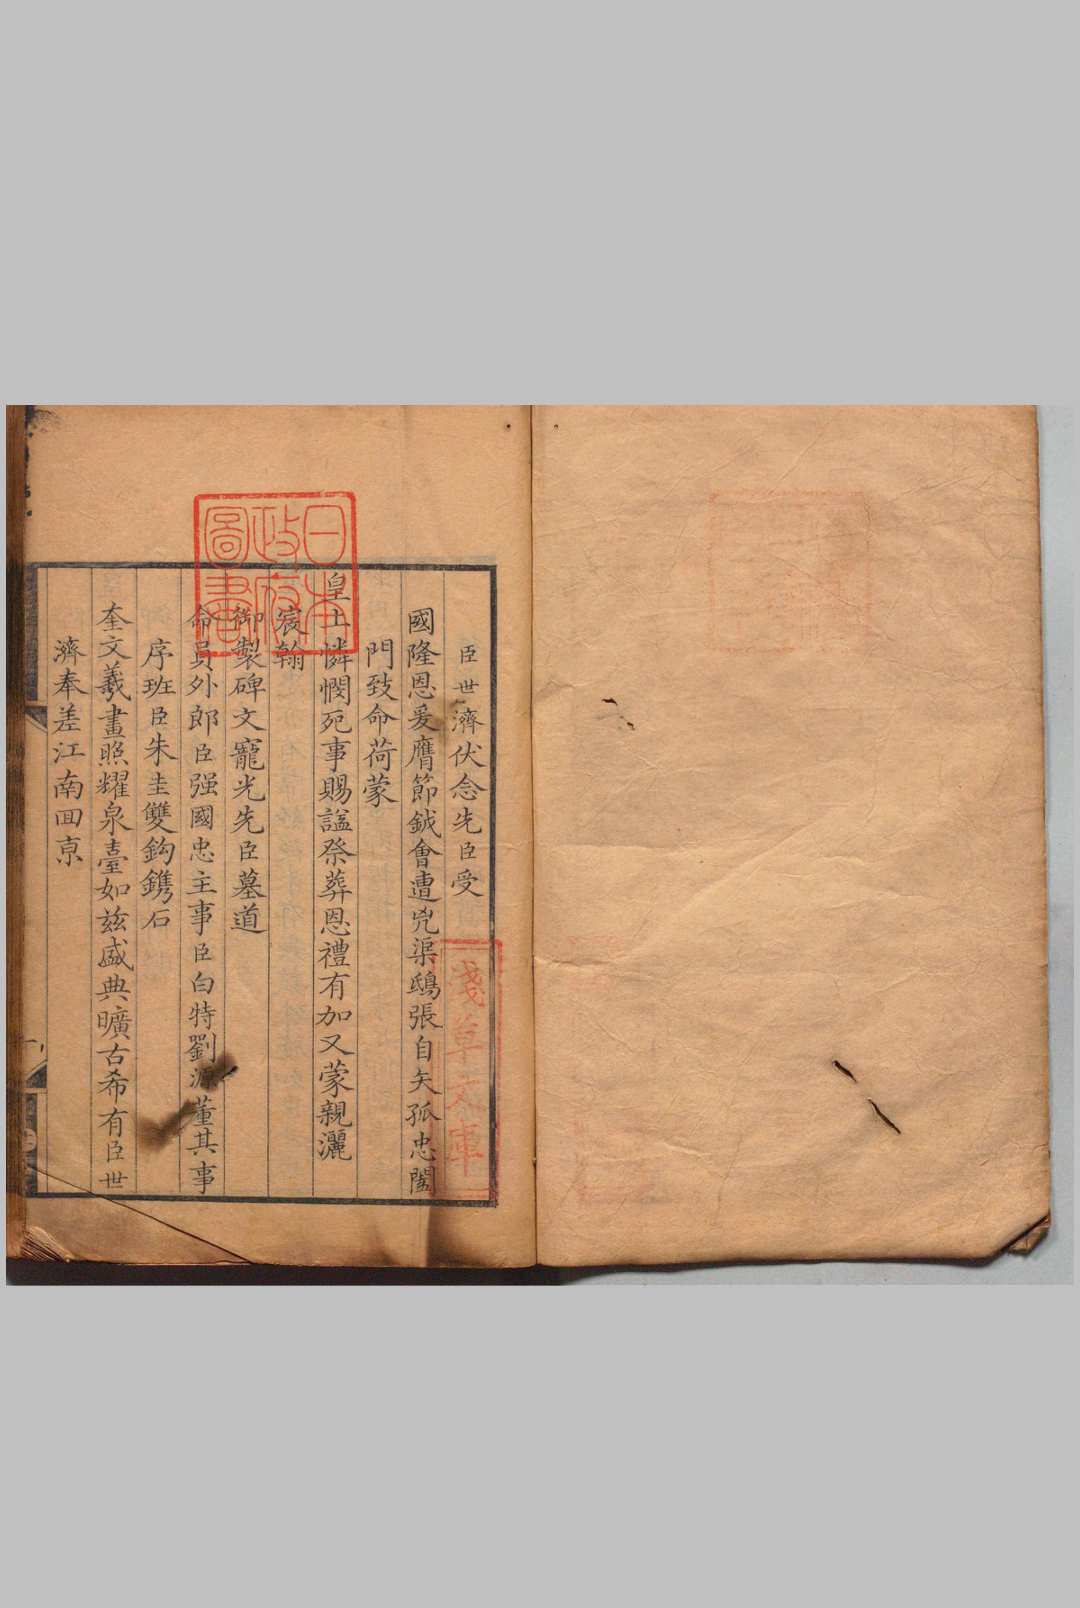 臣世濟伏念先臣受
國隆恩爰膺節鉞會遭兇渠鴟張自矢孤忠闔
門致命荷蒙
皇上憐憫死事賜諡祭葬恩禮有加又蒙親灑
宸翰
御製碑文寵光先臣墓道
命員外郎臣强國忠主事臣白特劉源董其事
序班臣朱圭雙鈎鐫石
奎文羲畫照耀泉臺如茲盛典曠古希有臣世
濟奉差江南回京
日本
政府
圖書
淺草文庫